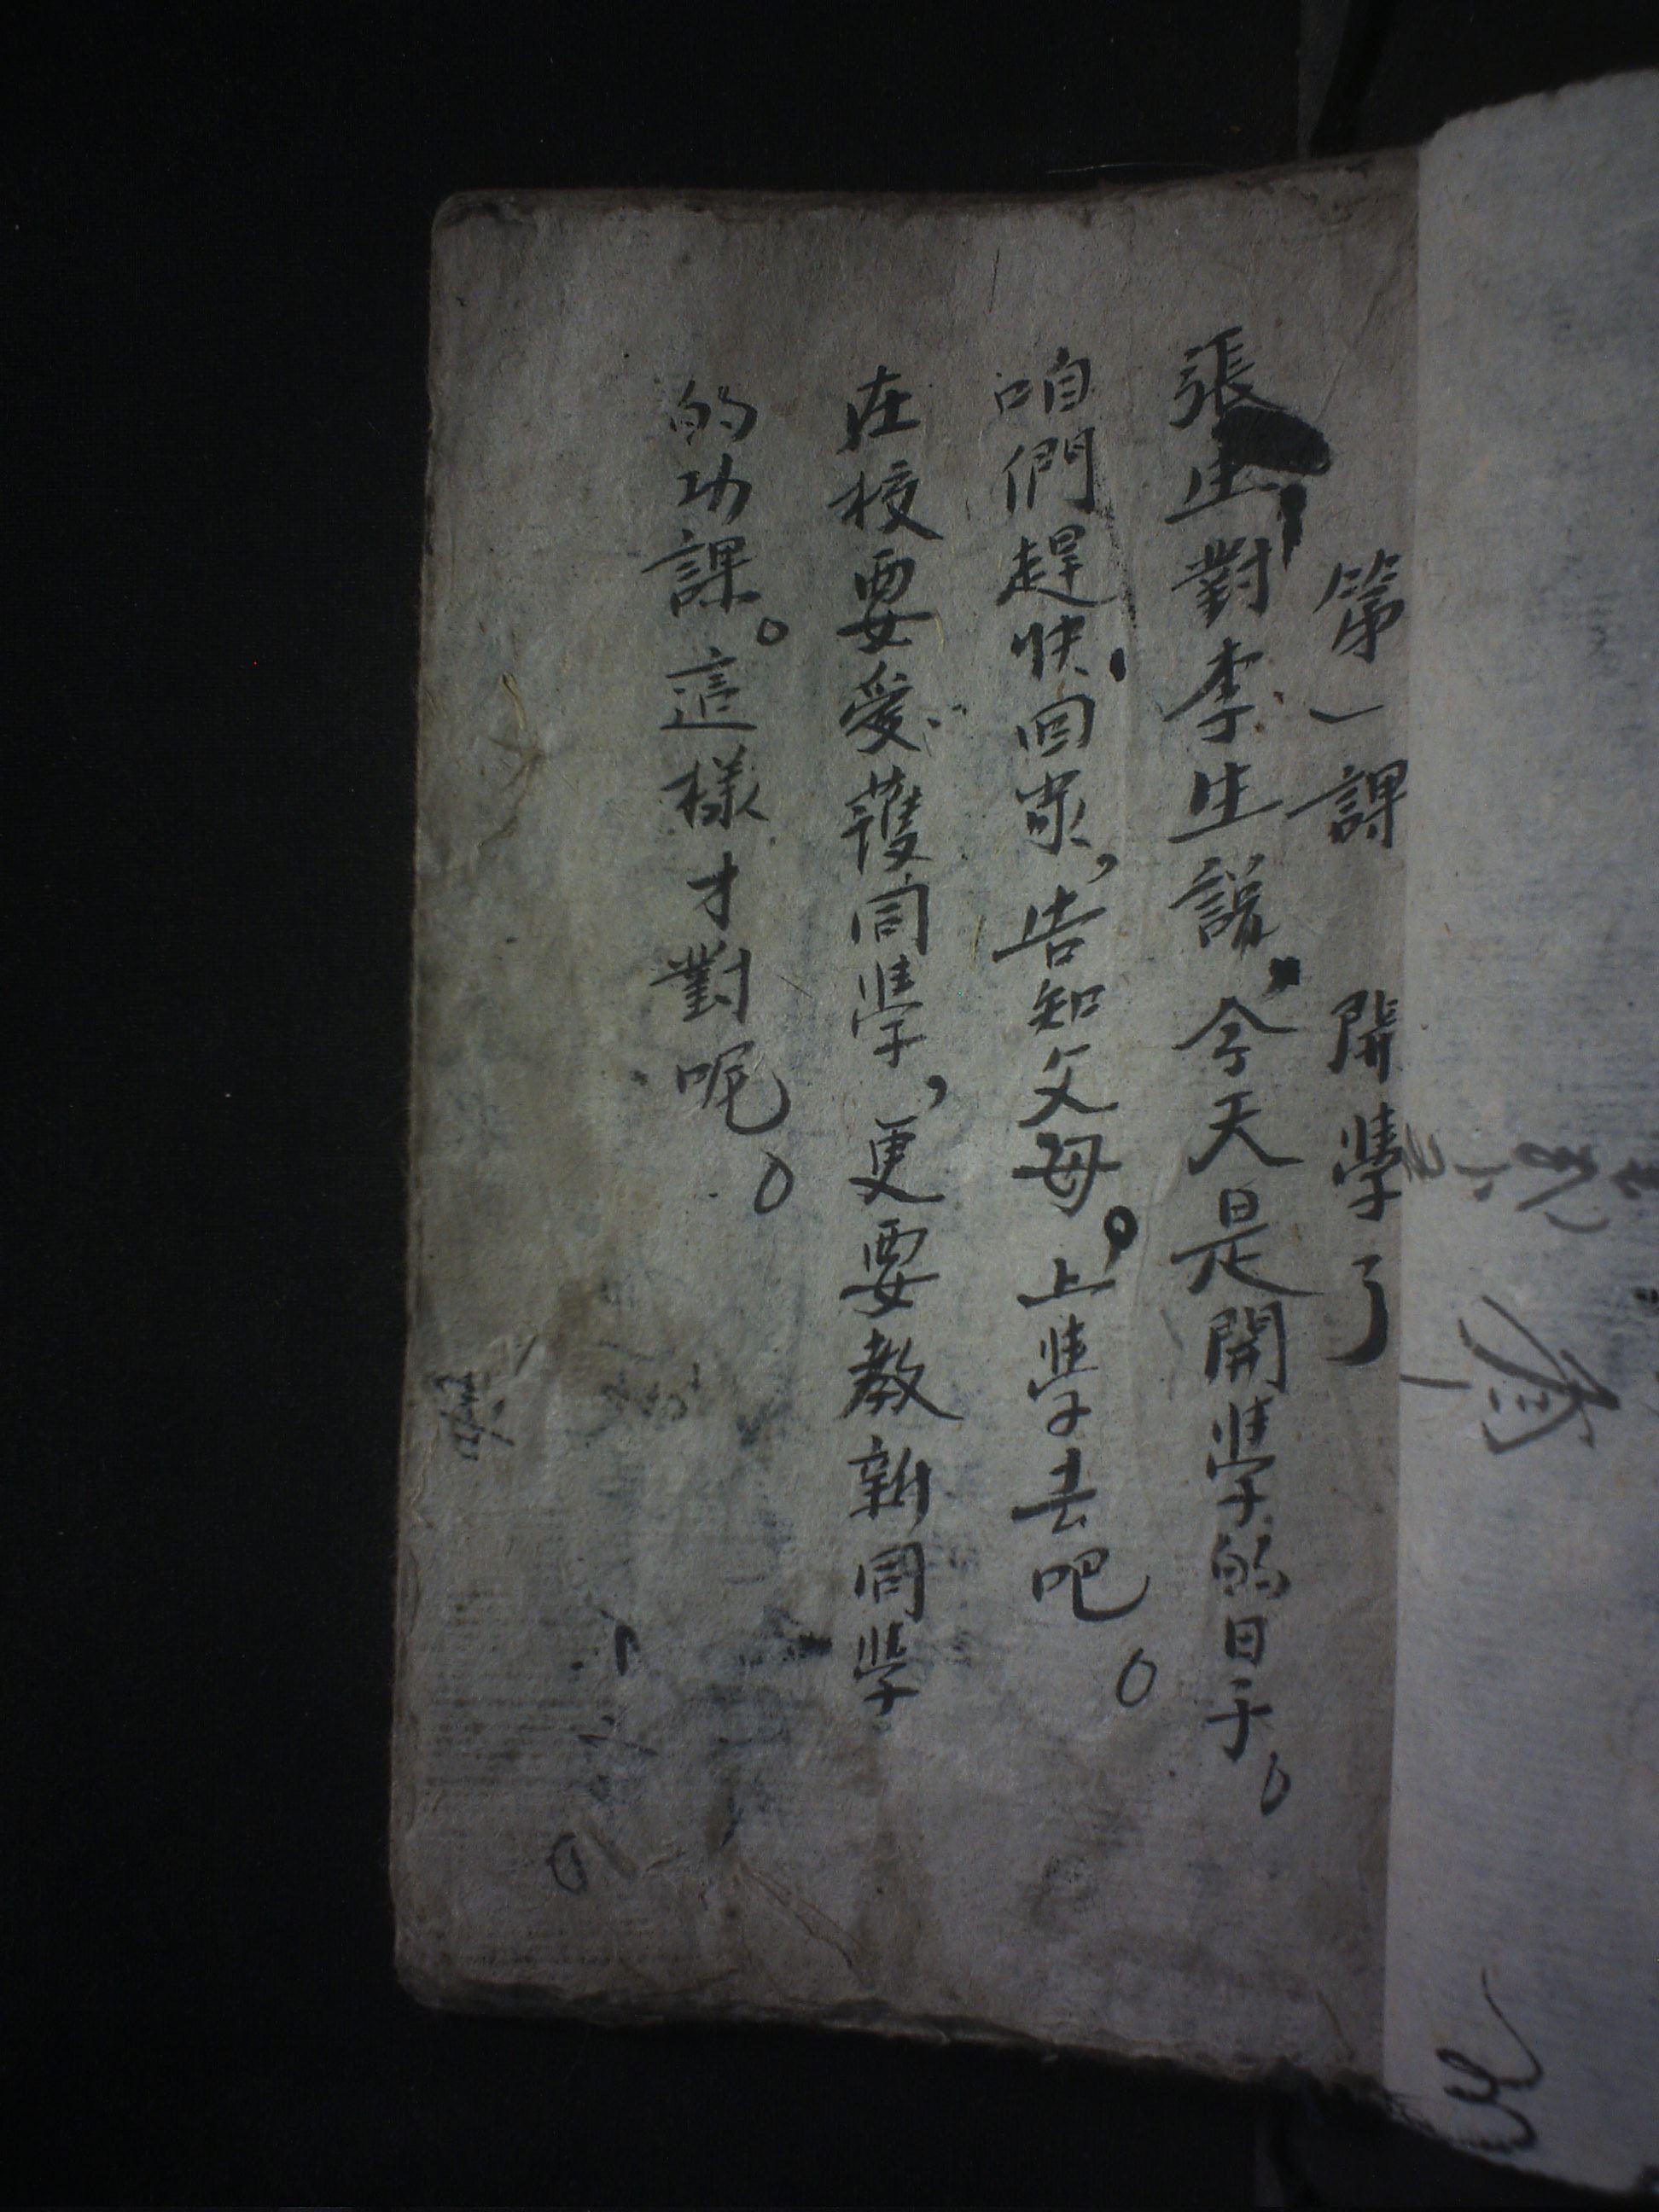 第一課 開學了
張生對李生說，今天是開學的日子。
咱們趕快回家，告知父母。上學去吧。
在校要愛護同學，更要教新同學
的功課。這樣才對呢。